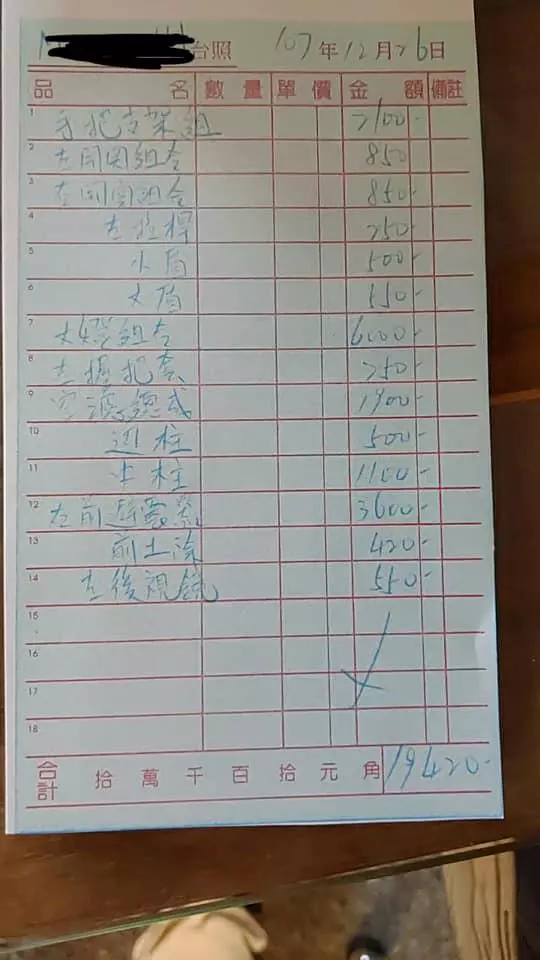 台照 107年12月26日
品名 數量 單價 金額 備註
1 手把支架組 2100-
2 左開關組合 850
3 850-
4 左拉桿 250-
5 小盾 500-
6 大盾 550-
7 大燈組合 6000-
8 左握把套 250-
9 空濾總成 1900-
10 邊柱 500-
11 中柱 1100-
12 左前避震器 3600-
13 前土 420-
14 左後視鏡 550-
15
16
17
18
合計 拾萬千百拾元角 19420-